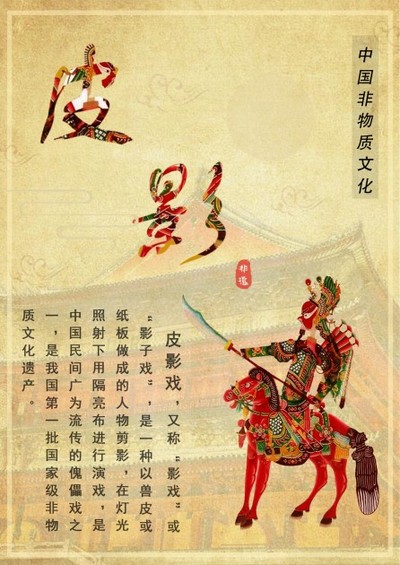 中国非物质文化
皮
影
非遗
皮影戏，又称“影戏”或
“影子戏”，是一种以兽皮或
纸板做成的人物剪影，在灯光
照射下用隔亮布进行演戏，是
中国民间广为流传的傀儡戏之
一，是我国第一批国家级非物
质文化遗产。